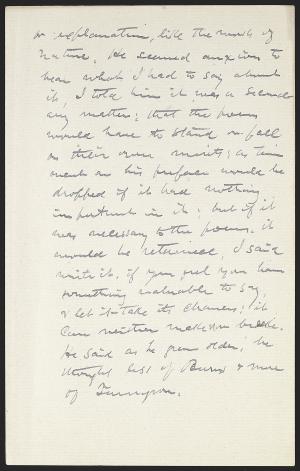 or explanation, like the works of
Nature. He seemed anxious to
hear what I had to say about
it, I told him it was a second-
ary matter; that the poems
would have to stand or fall
on their own merits; as time
went on his preface would be
dropped if it had nothing
important in it; but if it
was necessary to the poems it
would be retained, I said
write it, if you feel you have
something valuable to say,
& let it take its chances; it
can neither make nor break.
He said as he grew older, he
thought less of Burns & more
of Tennyson.